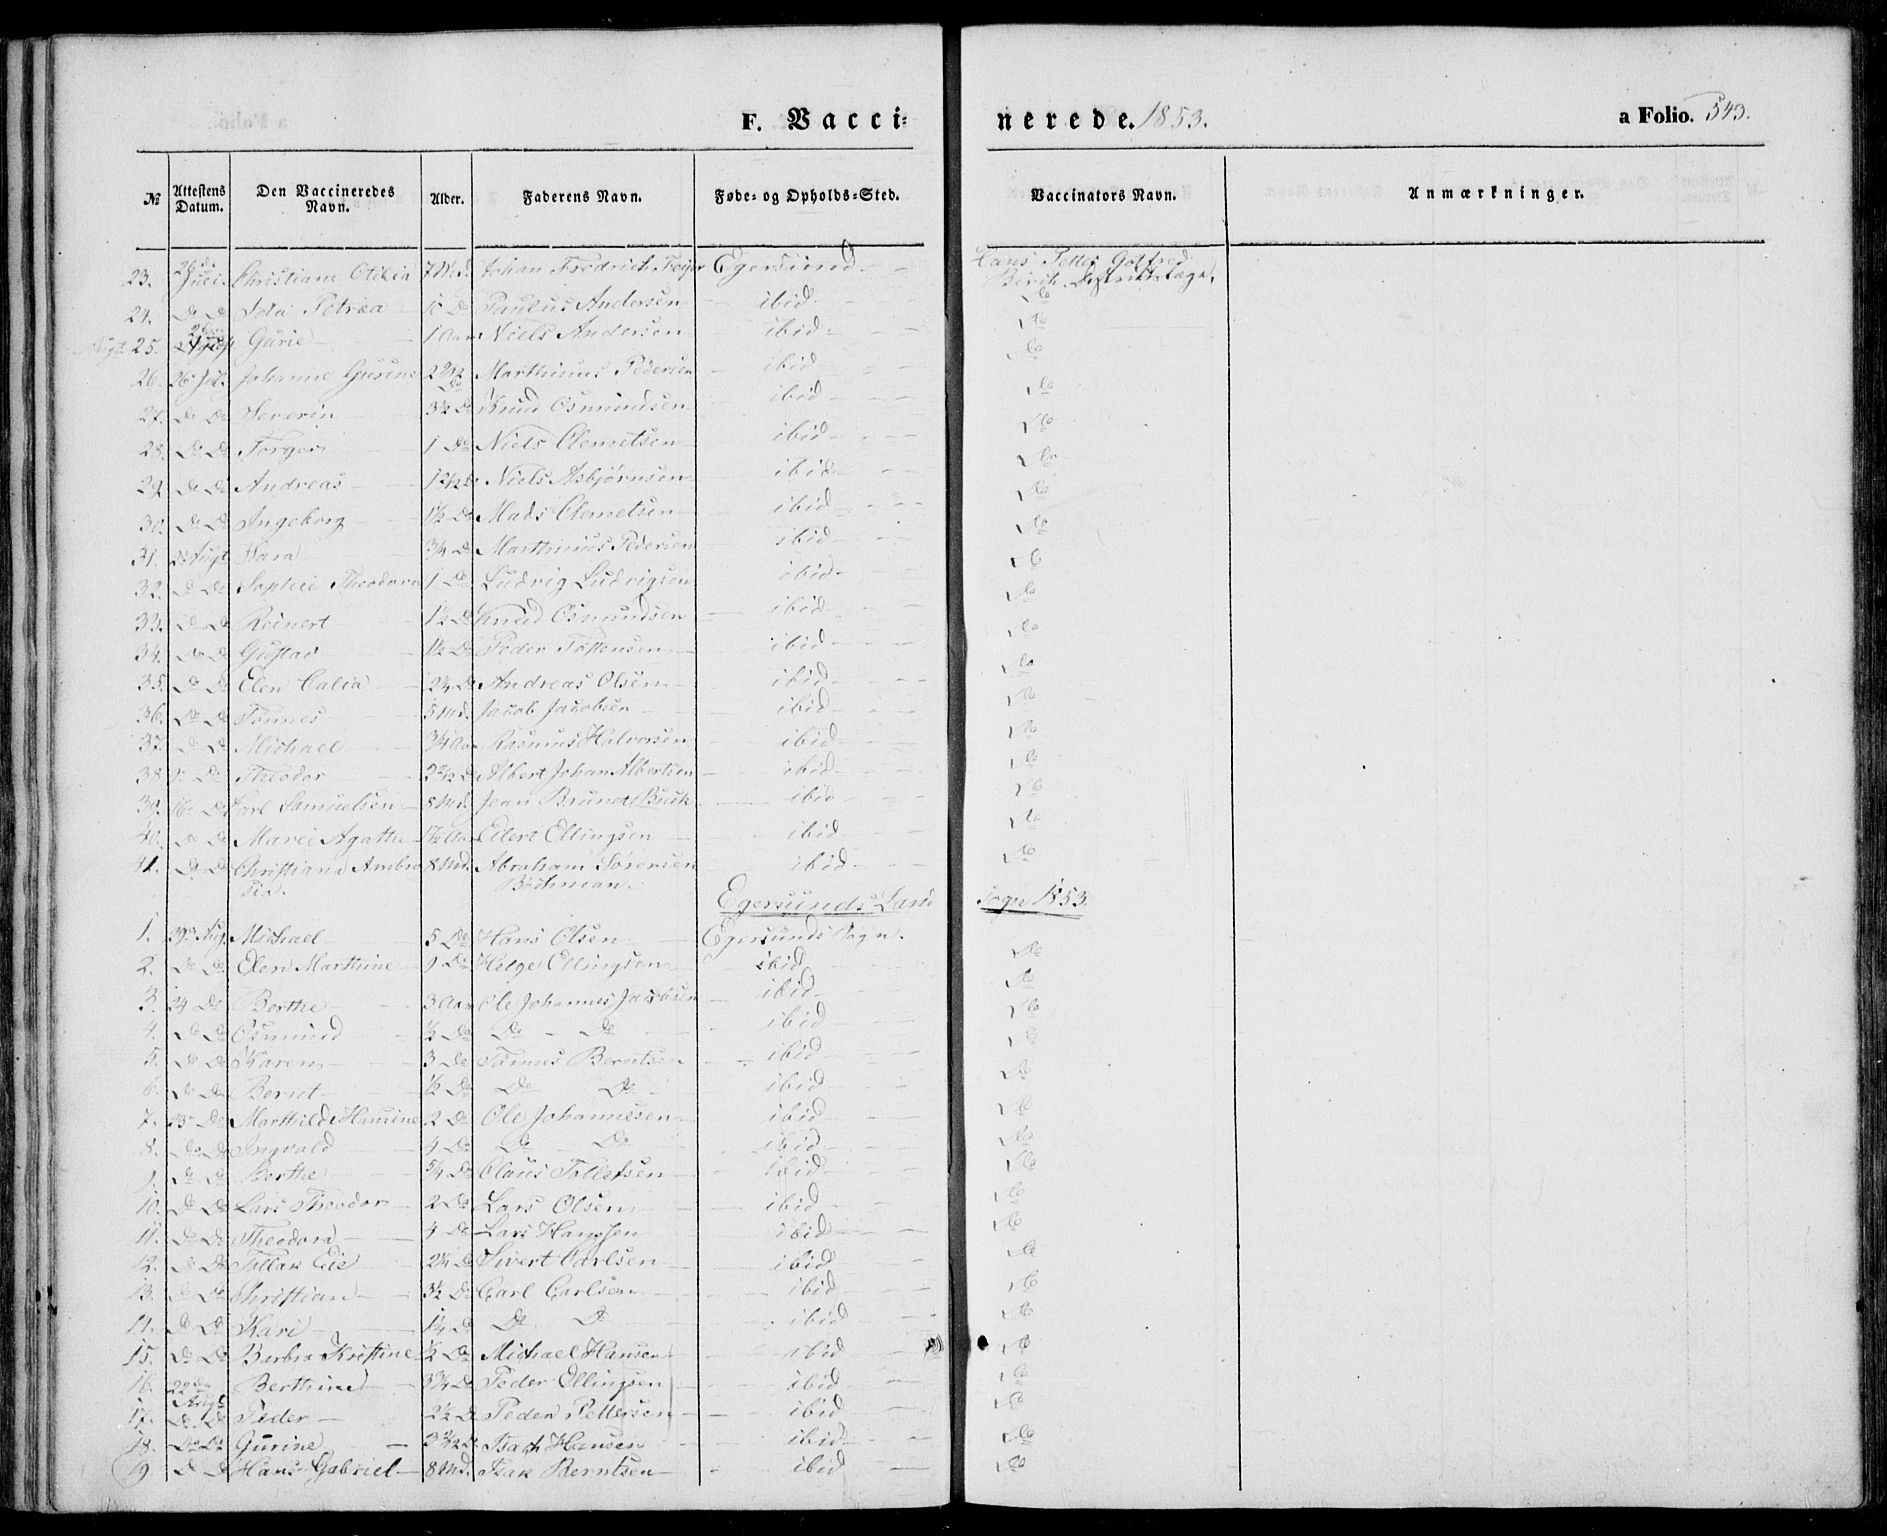 F. Vacci- nerede. 1853. a Folio. 543.
№ Attestens Datum. Den Vaccineredes Navn. Alder. Faderens Navn. Føde- og Opholds-Sted. Vaccinators Navn. Anmærkninger.
23. 26de Juli. Christiane Otilia 7 Md. Johan Fredrich Egersund Hans Petter Gotfred
Birch. Destriktslæge.
24. Do Do Ida Petrea Do Paulus Andersen ibid Do
25. Gurie 1 Aar Niels Andersen ibid Do
26. 26 Jul. Johanne Gurine Marthinus Pedersen ibid Do
27. Do Do Severin 3½ Do Knud Osmundsen ibid Do
28. Do Do Torger 1 Do Niels Clemetsen ibid Do
29. Do Do Andreas Niels Asbjørnsen ibid Do
30. Do Do Ingeborg 1½ Do Mads Clemetsen ibid Do
31. 2 Augt Sara 3/4 Do Marthinus Pedersen ibid Do
32. Do Do Sophie Theodora 1 Do Ludvig Ludvigsen ibid Do
33. Do Do Reinert 1½ Do Knud Osmundsen ibid Do
34. Do Do Gustav 1½ Do Peder Tostensen ibid Do
35. Do Do Elen Calia 2¼ Do Andreas Olsen ibid Do
36. Do Do Tønnes 5 Md. Jacob Jacobsen ibid Do
37. Do Do Michael 3/4 Aar Rasmus Halvorsen ibid Do
38. 9 Do Theodor Albert Johan Albertsen ibid Do
39. 16 Do Carl Samuelsen 8 Md. Jean Brunet ibid Do
40. Do Do Marie Agathe Eilert Ellingsen ibid Do
41. Do Do Christiana Ambro 8 Md. Abraham Sørensen ibid Do
sia. Bøchman.
Egersunds Land Sogn 1853.
1. 19 Aug. Michael 5 Do Hans Olsen Egersunds Sogn. Do
2. Do Do Elen Marthine 9 Do Helge Ellingsen ibid Do
3. 24 Do Berthe 3 Aar Ole Johannes Jacobsen ibid Do
4. Do Do Osmund ½ Do Do Do ibid Do
5. Do Do Karen 3 Do Tønnes Berntsen ibid Do
6. Do Do Bernt ½ Do Do Do ibid Do
7. Do Marthilde Hansine 2 Do Ole Johannesen ibid Do
8. Do Do Ingvald 4 Do Do Do ibid Do
9. Do Do Berthe 5/4 Do Claus Tollefsen ibid Do
10. Do Do Lars Theodor 2 Do Lars Olsen ibid Do
11. Do Do Theodora 4 Do Lars Hanssen ibid Do
12. Do Do Tollak Eie 2¼ Do Sivert Carlsen ibid Do
13. Do Do Christian 3½ Do Carl Carlsen ibid Do
14. Do Do Kari 1¼ Do Do Do ibid Do
15. Do Do Barbra Kristine ½ Do Michael Hansen ibid Do
16. 22de Augt Berthine 3¾ Do Peder Ellingsen ibid Do
17. Do Do Peder 2½ Do Peder Pettersen ibid Do
18. Do Do Gurine Isach Hansen ibid Do
19 Do Do Hans Gabriel 8 Md. Isak Berntsen ibid Do